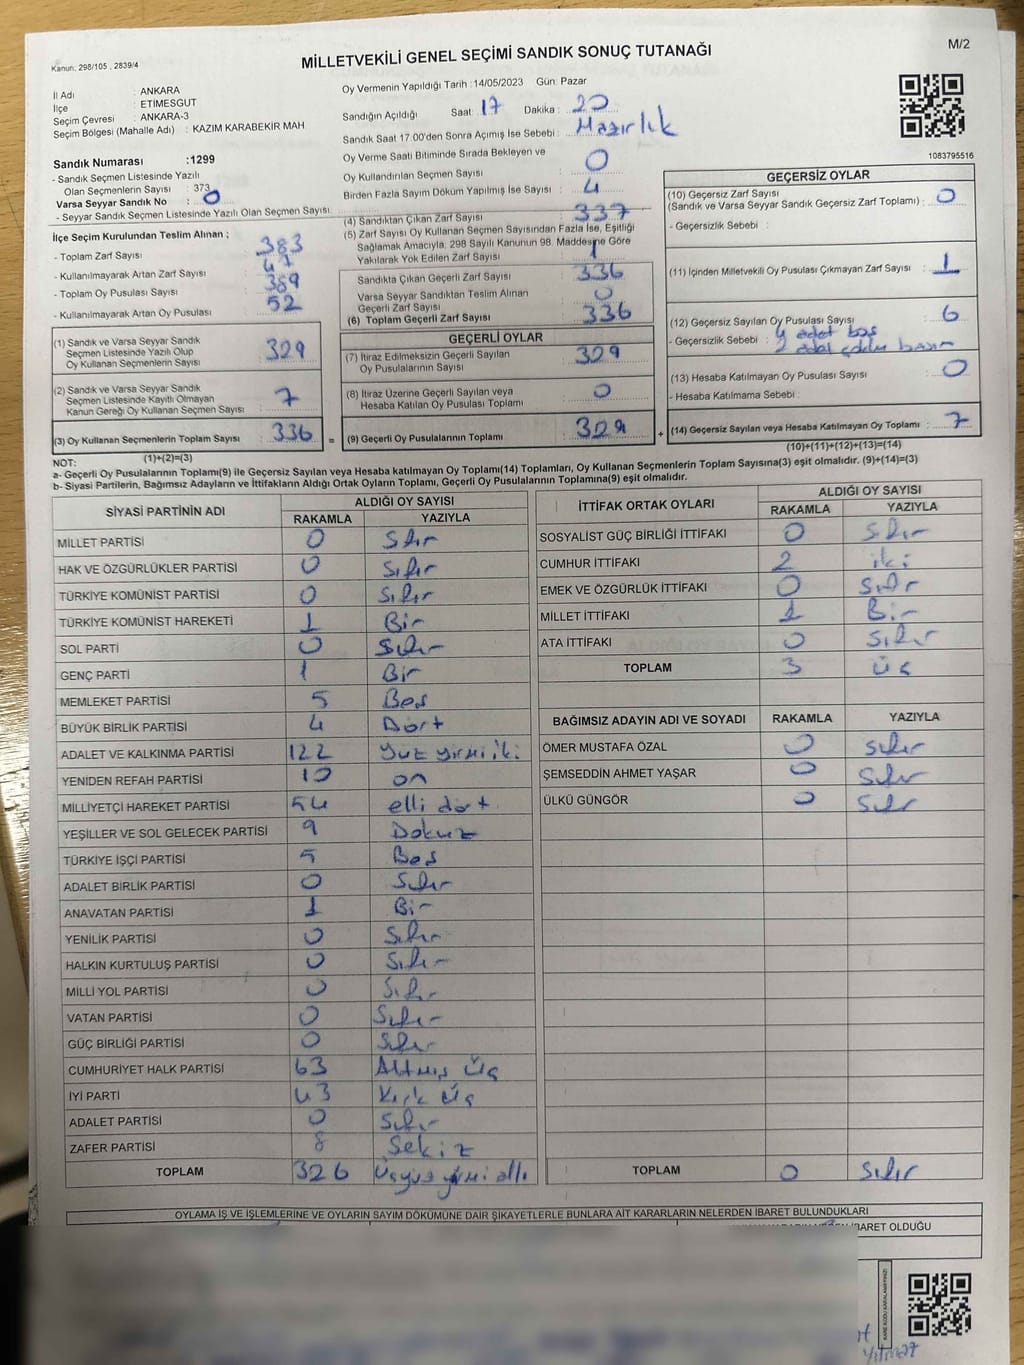 M/2
Kanun: 298/105 , 2839/4
MİLLETVEKİLİ GENEL SEÇİMİ SANDIK SONUÇ TUTANAĞI
İl Adı : ANKARA
İlçe : ETİMESGUT
Seçim Çevresi : ANKARA-3
Seçim Bölgesi (Mahalle Adı) : KAZIM KARABEKİR MAH
Oy Vermenin Yapıldığı Tarih :14/05/2023 Gün: Pazar
Sandığın Açıldığı Saat: 17 Dakika : 20
Sandık Saat 17.00'den Sonra Açımış İse Sebebi : Hazırlık
Oy Verme Saati Bitiminde Sırada Bekleyen ve
Oy Kullandırılan Seçmen Sayısı : 0
Birden Fazla Sayım Döküm Yapılmış İse Sayısı : 4
1083795516
Sandık Numarası :1299
- Sandık Seçmen Listesinde Yazılı
Olan Seçmenlerin Sayısı : 373
Varsa Seyyar Sandık No : 0
- Seyyar Sandık Seçmen Listesinde Yazılı Olan Seçmen Sayısı:
İlçe Seçim Kurulundan Teslim Alınan ;
- Toplam Zarf Sayısı : 383
- Kullanılmayarak Artan Zarf Sayısı : 47
- Toplam Oy Pusulası Sayısı : 389
- Kullanılmayarak Artan Oy Pusulası : 52
(1) Sandık ve Varsa Seyyar Sandık
Seçmen Listesinde Yazılı Olup
Oy Kullanan Seçmenlerin Sayısı : 329
(2) Sandık ve Varsa Seyyar Sandık
Seçmen Listesinde Kayıtlı Olmayan
Kanun Gereği Oy Kullanan Seçmen Sayısı : 7
(3) Oy Kullanan Seçmenlerin Toplam Sayısı : 336
(1)+(2)=(3)
(4) Sandıktan Çıkan Zarf Sayısı : 337
(5) Zarf Sayısı Oy Kullanan Seçmen Sayısından Fazla İse, Eşitliği
Sağlamak Amacıyla, 298 Sayılı Kanunun 98. Maddesine Göre
Yakılarak Yok Edilen Zarf Sayısı : 1
Sandıkta Çıkan Geçerli Zarf Sayısı : 336
Varsa Seyyar Sandıktan Teslim Alınan
Geçerli Zarf Sayısı : 0
(6) Toplam Geçerli Zarf Sayısı : 336
GEÇERLİ OYLAR
(7) İtiraz Edilmeksizin Geçerli Sayılan
Oy Pusulalarının Sayısı : 329
(8) İtiraz Üzerine Geçerli Sayılan veya
Hesaba Katılan Oy Pusulası Toplamı : 0
= (9) Geçerli Oy Pusulalarının Toplamı : 329 +
GEÇERSİZ OYLAR
(10) Geçersiz Zarf Sayısı
(Sandık ve Varsa Seyyar Sandık Geçersiz Zarf Toplamı) : 0
- Geçersizlik Sebebi :
(11) İçinden Milletvekili Oy Pusulası Çıkmayan Zarf Sayısı : 1
(12) Geçersiz Sayılan Oy Pusulası Sayısı : 6
- Geçersizlik Sebebi : 4 adet boş
2 adet
(13) Hesaba Katılmayan Oy Pusulası Sayısı : 0
- Hesaba Katılmama Sebebi :
(14) Geçersiz Sayılan veya Hesaba Katılmayan Oy Toplamı : 7
(10)+(11)+(12)+(13)=(14)
NOT:
a- Geçerli Oy Pusulalarının Toplamı(9) ile Geçersiz Sayılan veya Hesaba katılmayan Oy Toplamı(14) Toplamları, Oy Kullanan Seçmenlerin Toplam Sayısına(3) eşit olmalıdır. (9)+(14)=(3)
b- Siyasi Partilerin, Bağımsız Adayların ve İttifakların Aldığı Ortak Oyların Toplamı, Geçerli Oy Pusulalarının Toplamına(9) eşit olmalıdır.
SİYASİ PARTİNİN ADI ALDIĞI OY SAYISI
RAKAMLA YAZIYLA
MİLLET PARTİSİ 0 Sıfır
HAK VE ÖZGÜRLÜKLER PARTİSİ 0 Sıfır
TÜRKİYE KOMÜNİST PARTİSİ 0 Sıfır
TÜRKİYE KOMÜNİST HAREKETİ 1 Bir
SOL PARTİ 0 Sıfır
GENÇ PARTİ 1 Bir
MEMLEKET PARTİSİ 5 Beş
BÜYÜK BİRLİK PARTİSİ 4 Dört
ADALET VE KALKINMA PARTİSİ 122 Yüz yirmi iki
YENİDEN REFAH PARTİSİ 10 on
MİLLİYETÇİ HAREKET PARTİSİ 54 elli dört
YEŞİLLER VE SOL GELECEK PARTİSİ 9 Dokuz
TÜRKİYE İŞÇİ PARTİSİ 5 Beş
ADALET BİRLİK PARTİSİ 0 Sıfır
ANAVATAN PARTİSİ 1 Bir
YENİLİK PARTİSİ 0 Sıfır
HALKIN KURTULUŞ PARTİSİ 0 Sıfır
MİLLİ YOL PARTİSİ 0 Sıfır
VATAN PARTİSİ 0 Sıfır
GÜÇ BİRLİĞİ PARTİSİ 0 Sıfır
CUMHURİYET HALK PARTİSİ 63 Altmış Üç
İYİ PARTİ 43 Kırk Üç
ADALET PARTİSİ 0 Sıfır
ZAFER PARTİSİ 8 Sekiz
TOPLAM 326 Üçyüz yirmi altı
İTTİFAK ORTAK OYLARI ALDIĞI OY SAYISI
RAKAMLA YAZIYLA
SOSYALİST GÜÇ BİRLİĞİ İTTİFAKI 0 Sıfır
CUMHUR İTTİFAKI 2 iki
EMEK VE ÖZGÜRLÜK İTTİFAKI 0 Sıfır
MİLLET İTTİFAKI 1 Bir
ATA İTTİFAKI 0 Sıfır
TOPLAM 3 üç
BAĞIMSIZ ADAYIN ADI VE SOYADI RAKAMLA YAZIYLA
ÖMER MUSTAFA ÖZAL 0 Sıfır
ŞEMSEDDİN AHMET YAŞAR 0 Sıfır
ÜLKÜ GÜNGÖR 0 Sıfır
TOPLAM 0 Sıfır
OYLAMA İŞ VE İŞLEMLERİNE VE OYLARIN SAYIM DÖKÜMÜNE DAİR ŞİKAYETLERLE BUNLARA AİT KARARLARIN NELERDEN İBARET BULUNDUKLARI
İBARET OLDUĞU